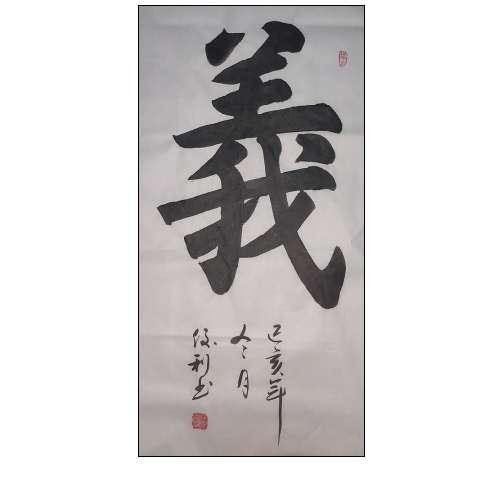 義
己亥年
冬月
俊利书